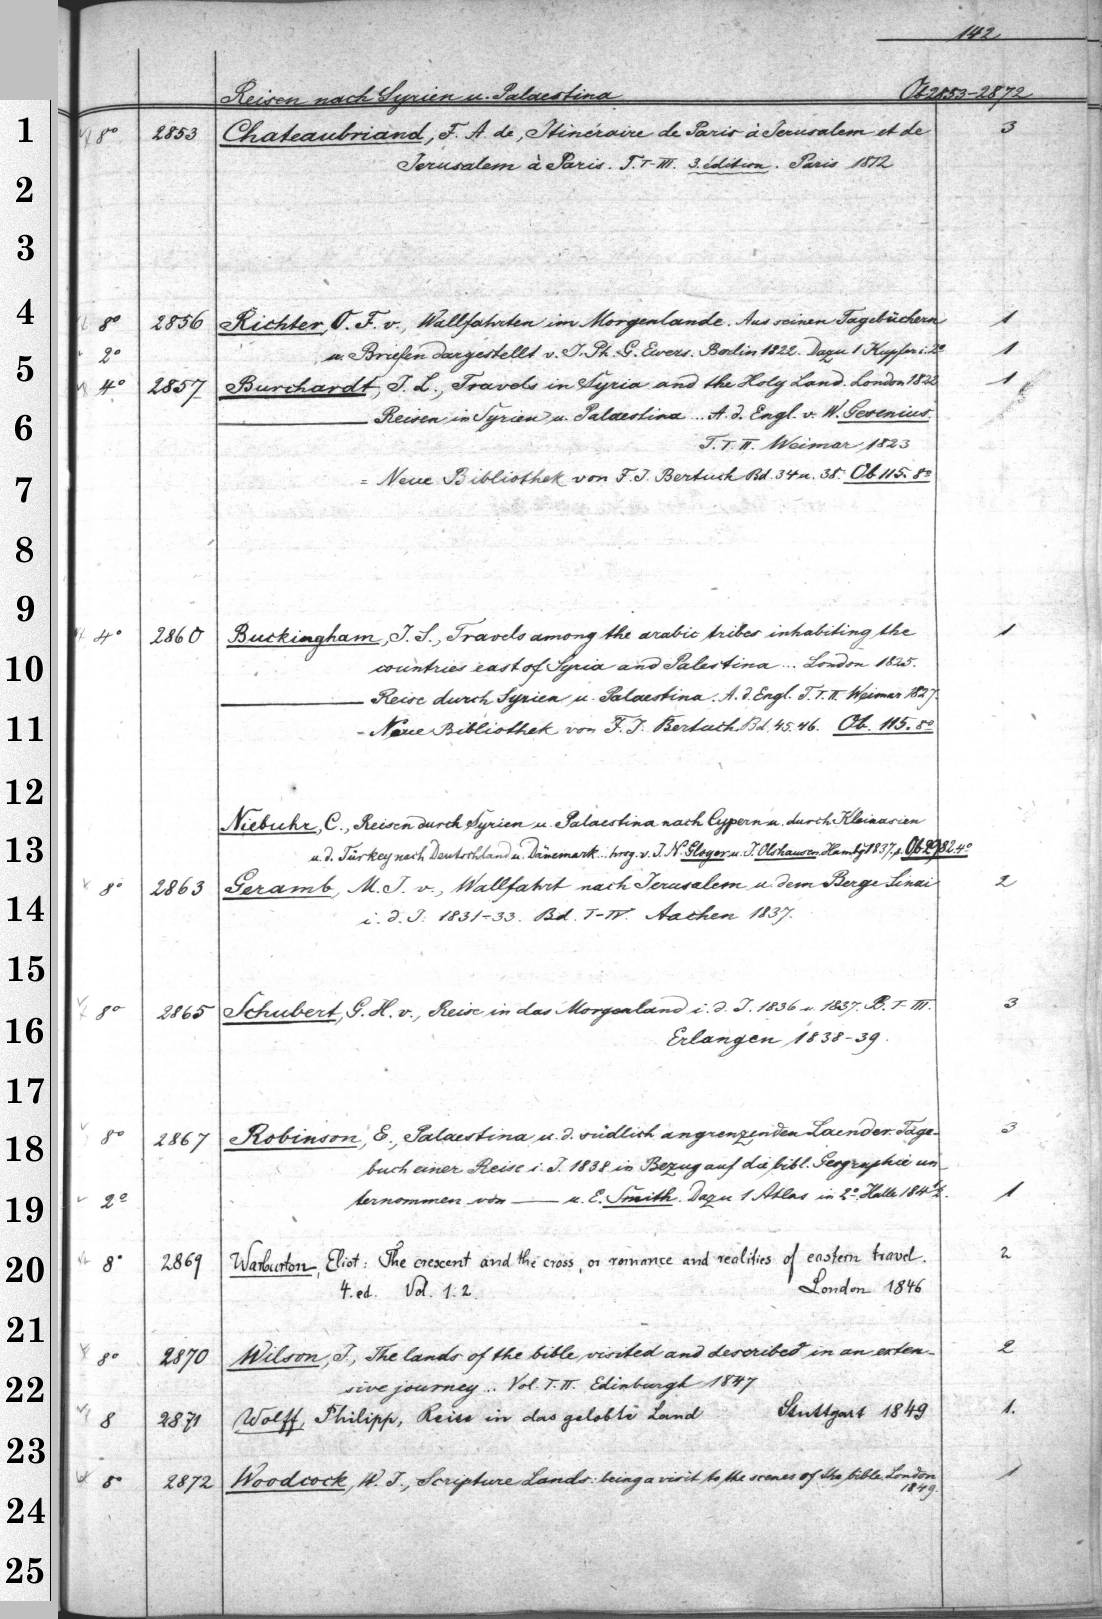 142
Reisen nach Syrien u. Palaestina Ob 2853-2872
1 8° 2853 Chateaubriand, F. A. de, Itinéraire de Paris à Jerusalem et de 3
Jérusalem à Paris. T. I-III. 3. édition. Paris 1812
2
3
4 8° 2856 Richter, O. F. v., Wallfahrten im Morgenlande. Aus seinen Tagebüchern 1
2° u. Briefen dargestellt v. J. Ph. G. Ewers. Berlin 1822. Dazu 1 Kupfer i. 2° 1
5 4° 2857 Burchardt, J. L., Travels in Syria and the Holy Land. London 1822 1
6 ——— Reisen in Syrien u. Palaestina .. A. d. Engl. v. W. Gesenius.
T. I. II. Weimar 1823
7 = Neue Bibliothek von F. J. Bertuch Bd. 34 u. 38. Ob 115. 8°
8
9
4° 2860 Buckingham, J. S., Travels among the arabic tribes inhabiting the 1
10 countries east of Syria and Palestina ... London 1825.
——— Reise durch Syrien u. Palaestina. A. d. Engl. T. I. II. Weimar 1827.
11 - Neue Bibliothek von F. J. Bertuch. Bd. 45. 46. Ob. 115. 8°
12
Niebuhr, C., Reisen durch Syrien u. Palaestina nach Cypern u. durch Kleinasien
13 u. d. Türkey nach Deutschland u. Dänemark .. hrsg. v. J. N. Gloyer u. J. Olshausen. Hambg 1837. s. Ob 2982. 4°
8° 2863 Geramb, M. J. v., Wallfahrt nach Jerusalem u. dem Berge Sinai 2
14 i. d. J. 1831-33. Bd. I-IV. Aachen 1837.
15
8° 2865 Schubert, G. H. v., Reise in das Morgenland i. d. J. 1836 u. 1837. B. I-III. 3
16 Erlangen 1838-39.
17
18 8° 2867 Robinson, E., Palaestina u. d. südlich angrenzenden Laender. Tage- 3
buch einer Reise i. J. 1838 in Bezug auf die bibl. Geographie un-
19 2° ternommen von —— u. E. Smith. Dazu 1 Atlas in 2°. Halle 1841/2. 1
20 8° 2869 Warburton, Eliot: The crescent and the cross, or romance and realities of eastern travel. 2
4. ed. Vol. 1. 2. London 1846
21
8° 2870 Wilson, J., The lands of the bible visited and described in an exten- 2
22 sive journey .. Vol. I. II. Edinburgh 1847
8 2871 Wolff, Philipp, Reise in das gelobte Land Stuttgart 1849 1.
23
8° 2872 Woodcock, W. J., Scripture Lands: being a visit to the scenes of the bible. London 1
1849.
24
25